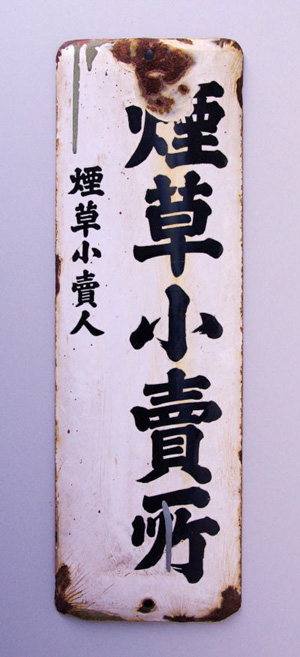 煙草小賣所
煙草小賣人